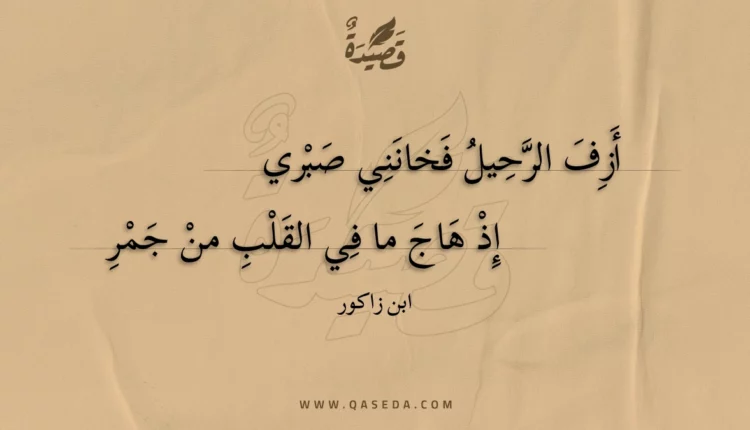 قَصِيْدَةٌ
أَزِفَ الرَّحِيلُ فَخانَنِي صَبْري
إِذْ هَاجَ ما فِي القَلْبِ منْ جَمْرِ
ابن زاكور
WWW.QASEDA.COM